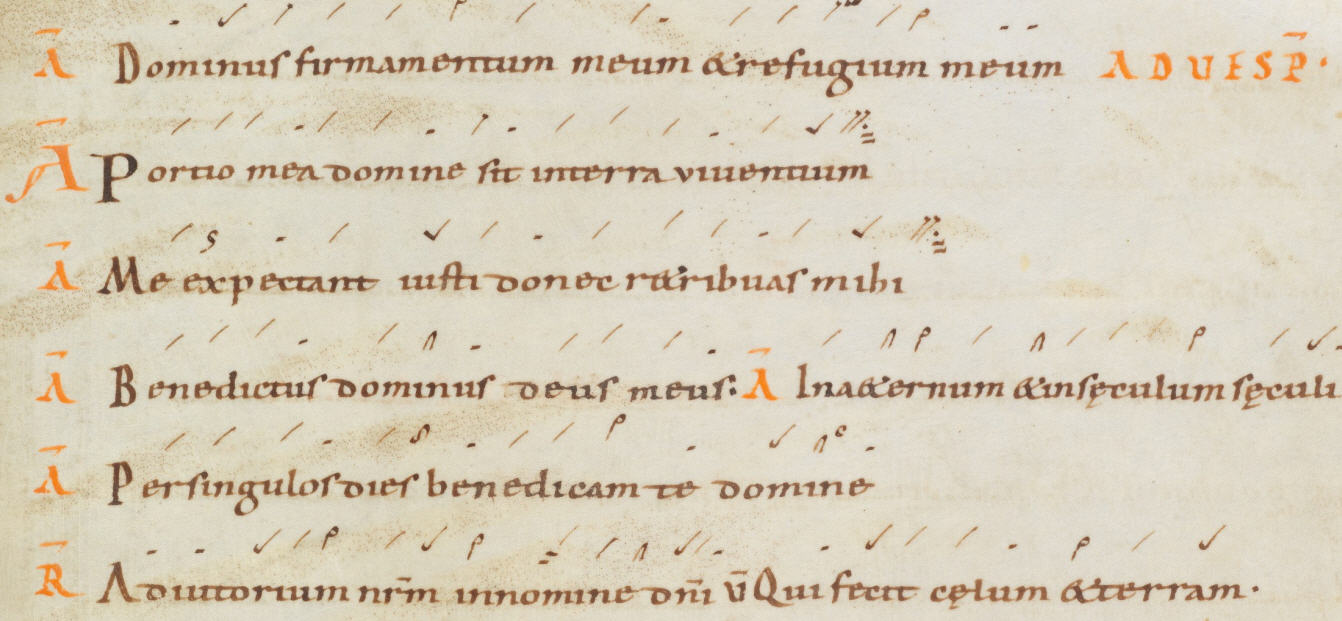 Ā Dominus firmamentum meum & refugium meum AD UESP̄.
Ā Portio mea domine sit in terra viventium
Ā Me expectant iusti donec r&ribuas mihi
Ā Benedictus dominus deus meus: Ā In a&ernum & in sęculum sęculi
Ā Per singulos dies benedicam te domine
R̄ Adiutorium nr̄m in nomine dn̄i v̄ Qui fecit cęlum & terram.